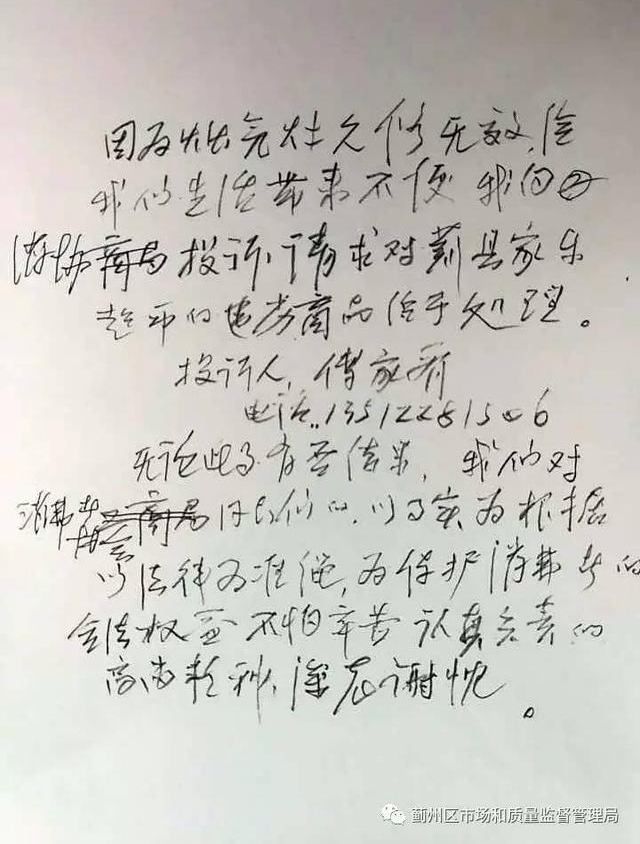 因为燃气灶久修无效，给
我们生活带来不便 我们向
消协投诉，请求对蓟县家乐
超市的电器商品给予处理。
投诉人，傅家
电话..135122815
无论此事有否结果，我们对
消费者协会同志们的，以事实为根据
以法律为准绳，为保护消费者的
合法权益 不怕辛苦 认真负责的
高尚精神，深表谢忱。
蓟州区市场和质量监督管理局